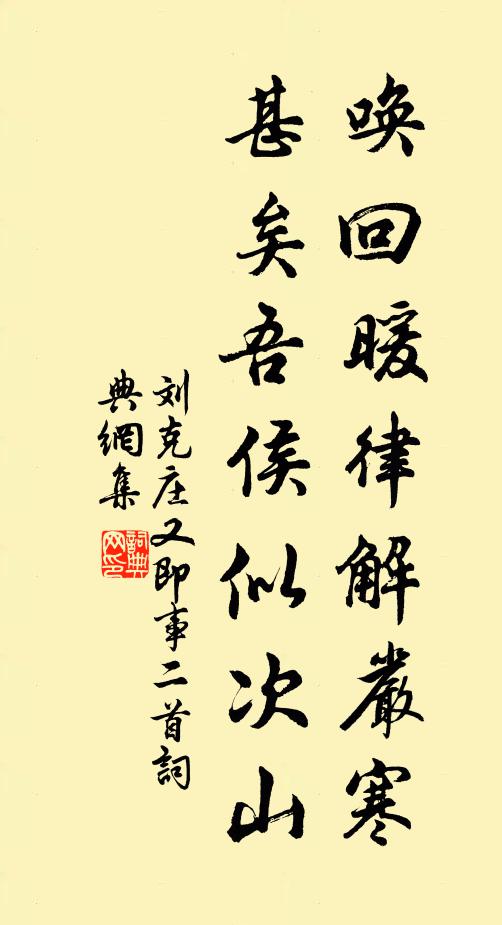 唤回暖律解嚴寒
甚矣吾侯似次山
刘克庄又即事二首詞
典網集
詞典
网印